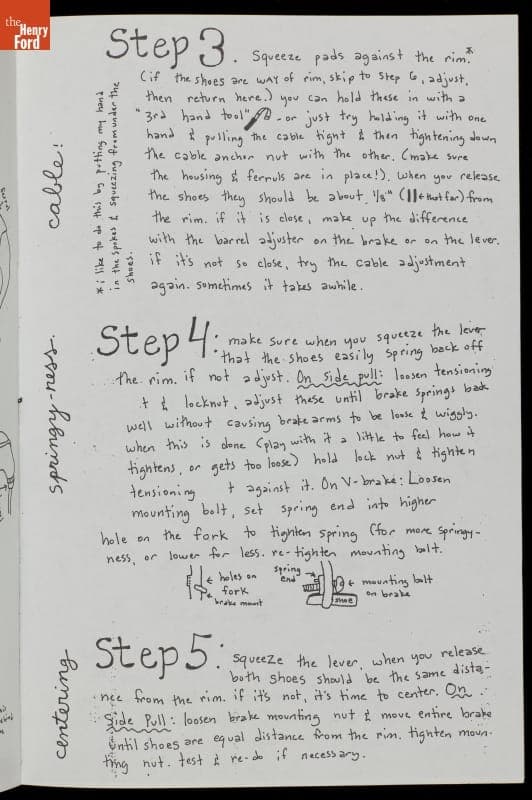 the
Henry
Ford
Step 3. Squeeze pads against the rim.*
(if the shoes are way of rim, skip to step 6, adjust,
then return here.) you can hold these in with a
"3rd hand tool" - or just try holding it with one
hand & pulling the cable tight & then tightening down
the cable anchor nut with the other. (make sure
the housing & ferruls are in place!). When you release
the shoes they should be about 1/8" (||← that far) from
the rim. if it is close, make up the difference
with the barrel adjuster on the brake or on the lever.
if it's not so close, try the cable adjustment
again. sometimes it takes awhile.
cable!
* i like to do this by putting my hand
in the spokes & squeezing from under the
shoes.
Step 4: make sure when you squeeze the lever
that the shoes easily spring back off
the rim. if not adjust. On side pull: loosen tensioning
t & locknut, adjust these until brake springs back
well without causing brake arms to be loose & wiggly.
when this is done (play with it a little to feel how it
tightens, or gets too loose) hold lock nut & tighten
tensioning t against it. On V-brake: Loosen
mounting bolt, set spring end into higher
hole on the fork to tighten spring (for more springy-
ness, or lower for less. re-tighten mounting bolt.
springy-ness.
← holes on
fork
brake mount
spring
end
← mounting bolt
on brake
shoe
Step 5: squeeze the lever, when you release
both shoes should be the same dista-
nce from the rim. if it's not, it's time to center. On
Side Pull: loosen brake mounting nut & move entire brake
until shoes are equal distance from the rim. tighten moun-
ting nut. test & re-do if necessary.
centering